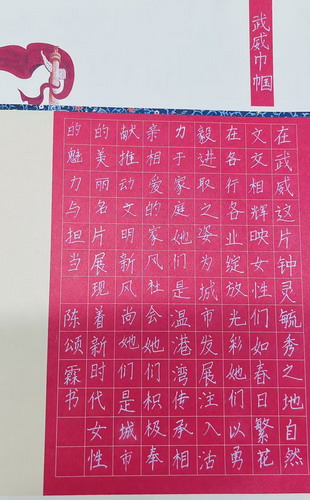 武威巾帼
在武威这片钟灵毓秀之地自然
文交相辉映女性们如春日繁花
在各行各业绽放光彩她们以勇
毅进取之姿为城市发展注入活
力于家庭她们是温港湾传承相
亲相爱的家风社会她们积极奉
献推动文明新风尚她们是城市
的美丽名片展现着新时代女性
的魅力与担当 陈颂霖书